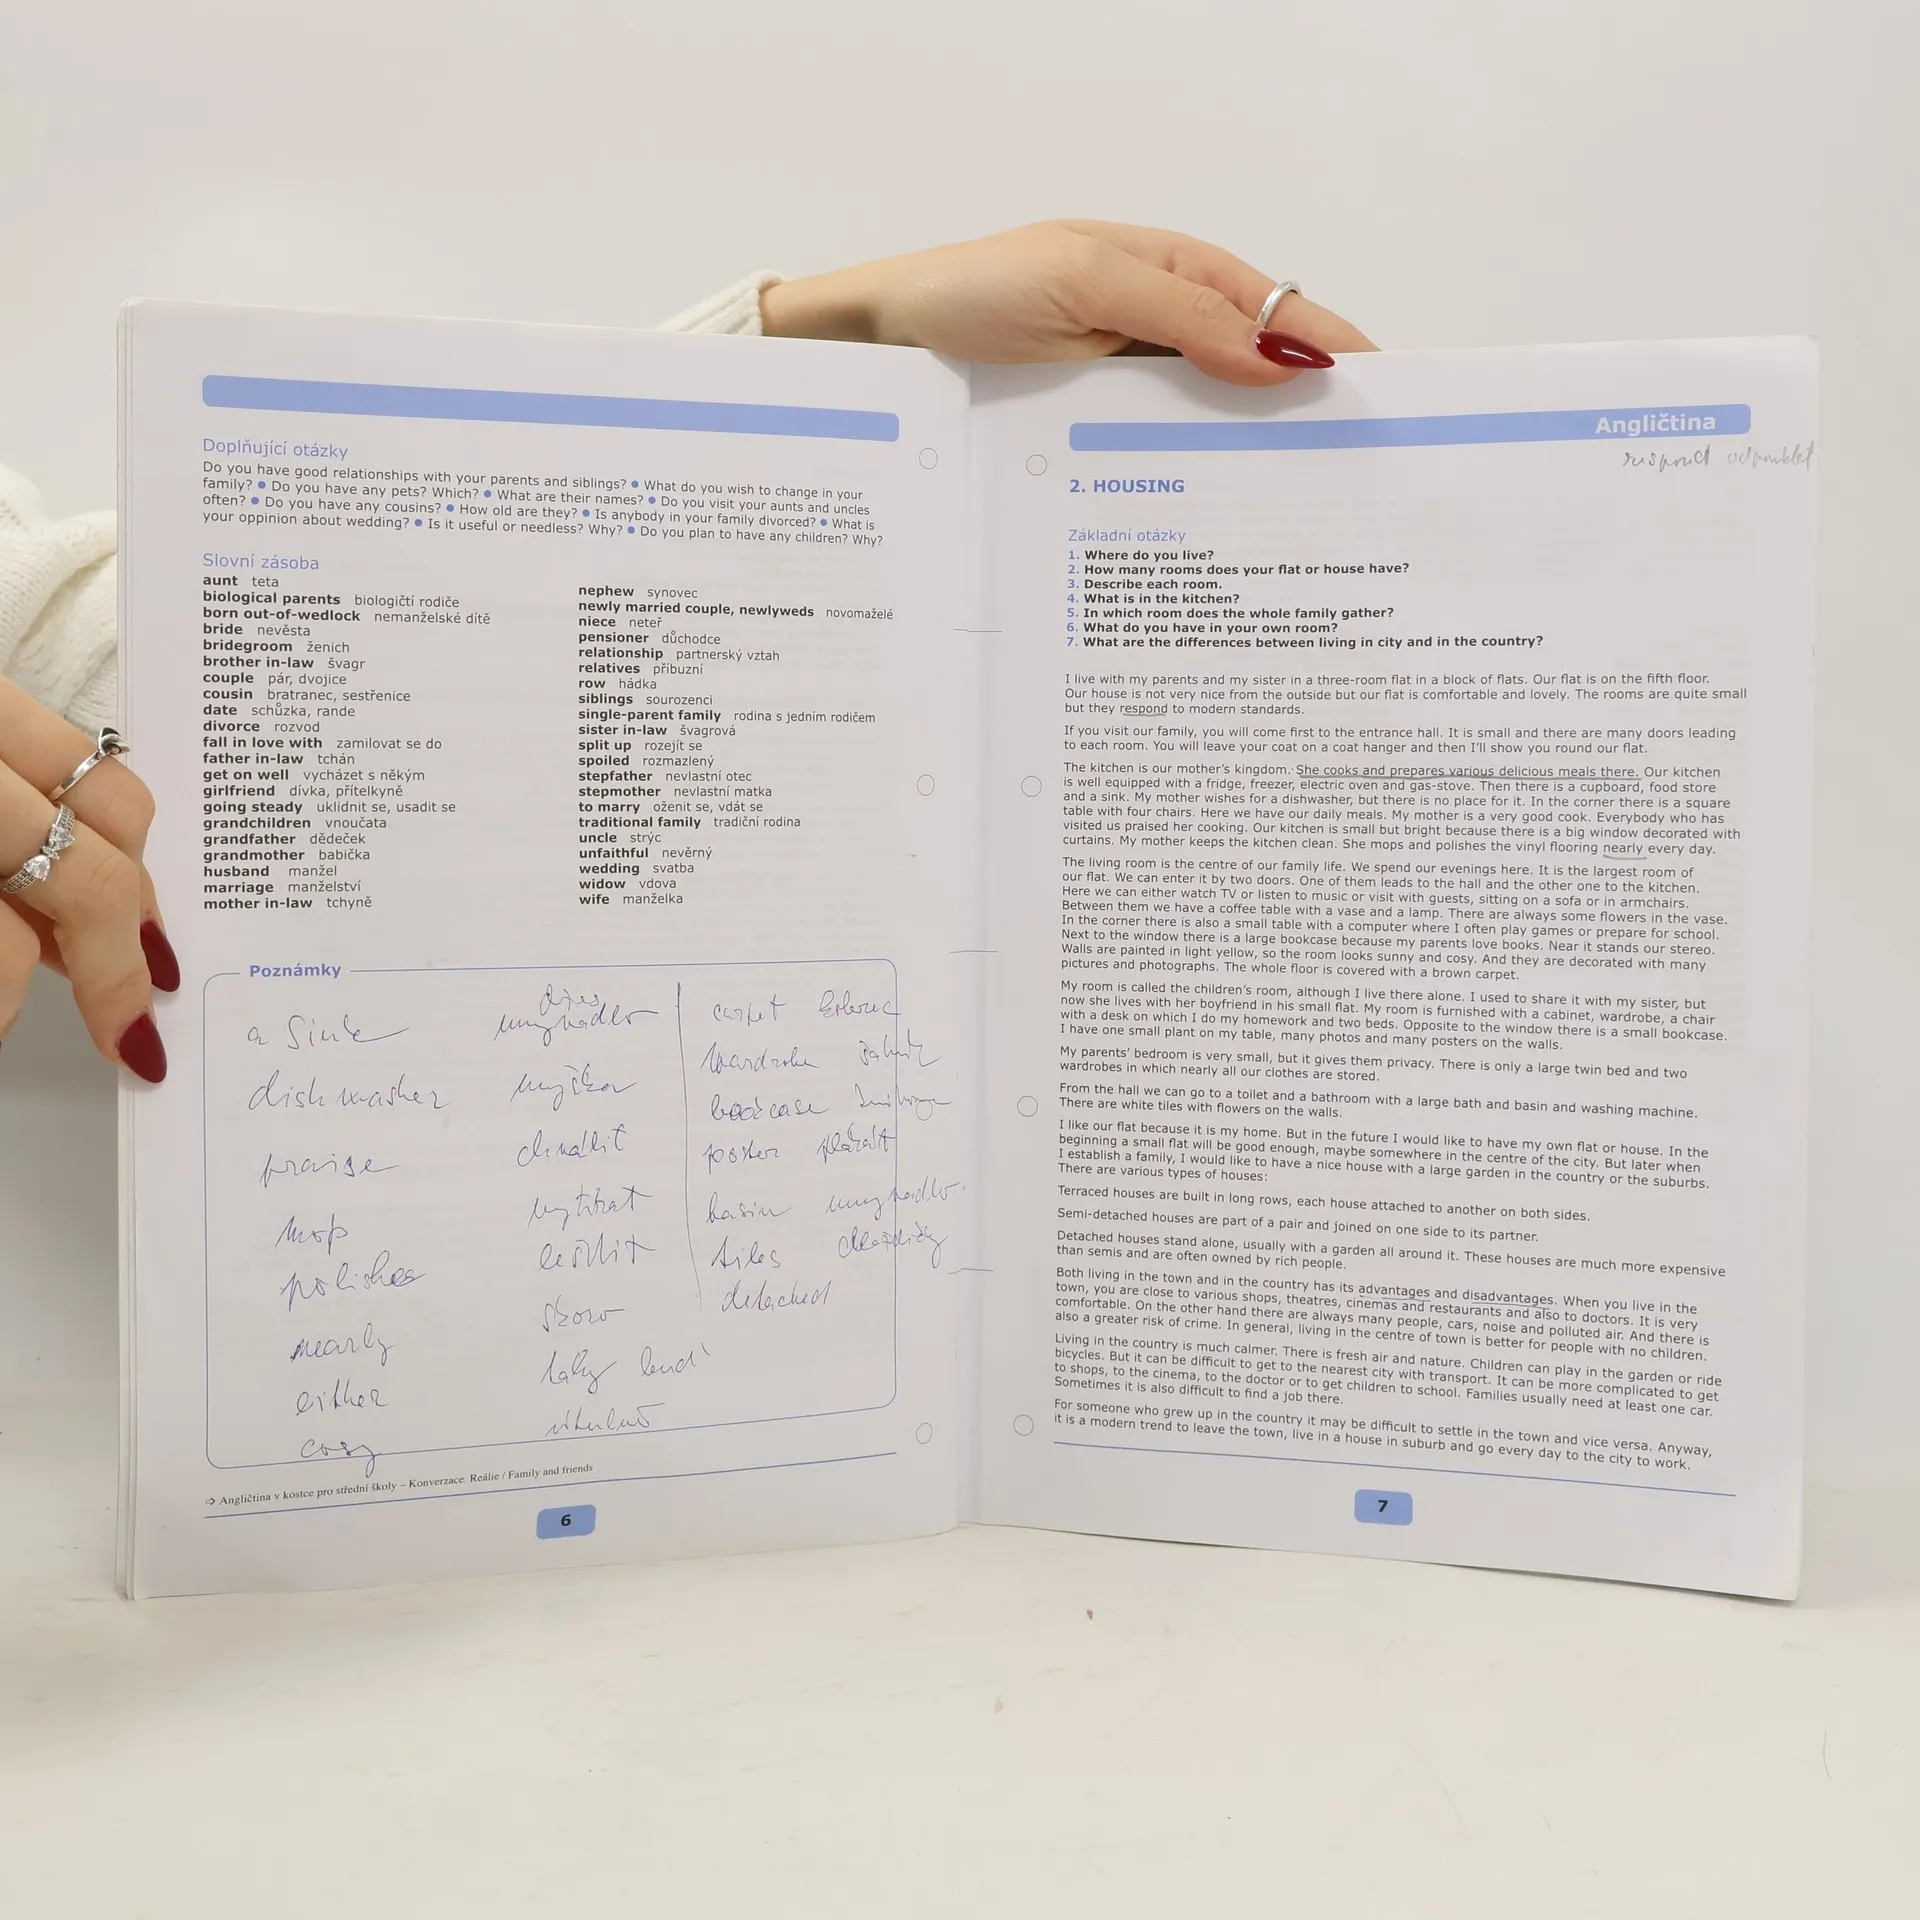 Doplňující otázky
Do you have good relationships with your parents and siblings? ● What do you wish to change in your
family? ● Do you have any pets? Which? ● What are their names? ● Do you visit your aunts and uncles
often? ● Do you have any cousins? ● How old are they? ● Is anybody in your family divorced? ● What is
your oppinion about wedding? ● Is it useful or needless? Why? ● Do you plan to have any children? Why?
Slovní zásoba
aunt teta
biological parents biologičtí rodiče
born out-of-wedlock nemanželské dítě
bride nevěsta
bridegroom ženich
brother in-law švagr
couple pár, dvojice
cousin bratranec, sestřenice
date schůzka, rande
divorce rozvod
fall in love with zamilovat se do
father in-law tchán
get on well vycházet s někým
girlfriend dívka, přítelkyně
going steady uklidnit se, usadit se
grandchildren vnoučata
grandfather dědeček
grandmother babička
husband manžel
marriage manželství
mother in-law tchyně
nephew synovec
newly married couple, newlyweds novomaželé
niece neteř
pensioner důchodce
relationship partnerský vztah
relatives příbuzní
row hádka
siblings sourozenci
single-parent family rodina s jedním rodičem
sister in-law švagrová
split up rozejít se
spoiled rozmazlený
stepfather nevlastní otec
stepmother nevlastní matka
to marry oženit se, vdát se
traditional family tradiční rodina
uncle strýc
unfaithful nevěrný
wedding svatba
widow vdova
wife manželka
Poznámky
a sink umyvadlo
dishwasher myčka
praise chválit
mop vytírat
polishes leštit
nearly skoro
either taky buď
cosy útulně
carpet koberec
wardrobe
bookcase
poster plakát
basin umyvadlo
tiles dlaždičky
detached
⇨ Angličtina v kostce pro střední školy – Konverzace. Reálie / Family and friends
6
Angličtina
respond
2. HOUSING
Základní otázky
1. Where do you live?
2. How many rooms does your flat or house have?
3. Describe each room.
4. What is in the kitchen?
5. In which room does the whole family gather?
6. What do you have in your own room?
7. What are the differences between living in city and in the country?
I live with my parents and my sister in a three-room flat in a block of flats. Our flat is on the fifth floor.
Our house is not very nice from the outside but our flat is comfortable and lovely. The rooms are quite small
but they respond to modern standards.
If you visit our family, you will come first to the entrance hall. It is small and there are many doors leading
to each room. You will leave your coat on a coat hanger and then I'll show you round our flat.
The kitchen is our mother's kingdom. She cooks and prepares various delicious meals there. Our kitchen
is well equipped with a fridge, freezer, electric oven and gas-stove. Then there is a cupboard, food store
and a sink. My mother wishes for a dishwasher, but there is no place for it. In the corner there is a square
table with four chairs. Here we have our daily meals. My mother is a very good cook. Everybody who has
visited us praised her cooking. Our kitchen is small but bright because there is a big window decorated with
curtains. My mother keeps the kitchen clean. She mops and polishes the vinyl flooring nearly every day.
The living room is the centre of our family life. We spend our evenings here. It is the largest room of
our flat. We can enter it by two doors. One of them leads to the hall and the other one to the kitchen.
Here we can either watch TV or listen to music or visit with guests, sitting on a sofa or in armchairs.
Between them we have a coffee table with a vase and a lamp. There are always some flowers in the vase.
In the corner there is also a small table with a computer where I often play games or prepare for school.
Next to the window there is a large bookcase because my parents love books. Near it stands our stereo.
Walls are painted in light yellow, so the room looks sunny and cosy. And they are decorated with many
pictures and photographs. The whole floor is covered with a brown carpet.
My room is called the children's room, although I live there alone. I used to share it with my sister, but
now she lives with her boyfriend in his small flat. My room is furnished with a cabinet, wardrobe, a chair
with a desk on which I do my homework and two beds. Opposite to the window there is a small bookcase.
I have one small plant on my table, many photos and many posters on the walls.
My parents' bedroom is very small, but it gives them privacy. There is only a large twin bed and two
wardrobes in which nearly all our clothes are stored.
From the hall we can go to a toilet and a bathroom with a large bath and basin and washing machine.
There are white tiles with flowers on the walls.
I like our flat because it is my home. But in the future I would like to have my own flat or house. In the
beginning a small flat will be good enough, maybe somewhere in the centre of the city. But later when
I establish a family, I would like to have a nice house with a large garden in the country or the suburbs.
There are various types of houses:
Terraced houses are built in long rows, each house attached to another on both sides.
Semi-detached houses are part of a pair and joined on one side to its partner.
Detached houses stand alone, usually with a garden all around it. These houses are much more expensive
than semis and are often owned by rich people.
Both living in the town and in the country has its advantages and disadvantages. When you live in the
town, you are close to various shops, theatres, cinemas and restaurants and also to doctors. It is very
comfortable. On the other hand there are always many people, cars, noise and polluted air. And there is
also a greater risk of crime. In general, living in the centre of town is better for people with no children.
Living in the country is much calmer. There is fresh air and nature. Children can play in the garden or ride
bicycles. But it can be difficult to get to the nearest city with transport. It can be more complicated to get
to shops, to the cinema, to the doctor or to get children to school. Families usually need at least one car.
Sometimes it is also difficult to find a job there.
For someone who grew up in the country it may be difficult to settle in the town and vice versa. Anyway,
it is a modern trend to leave the town, live in a house in suburb and go every day to the city to work.
7